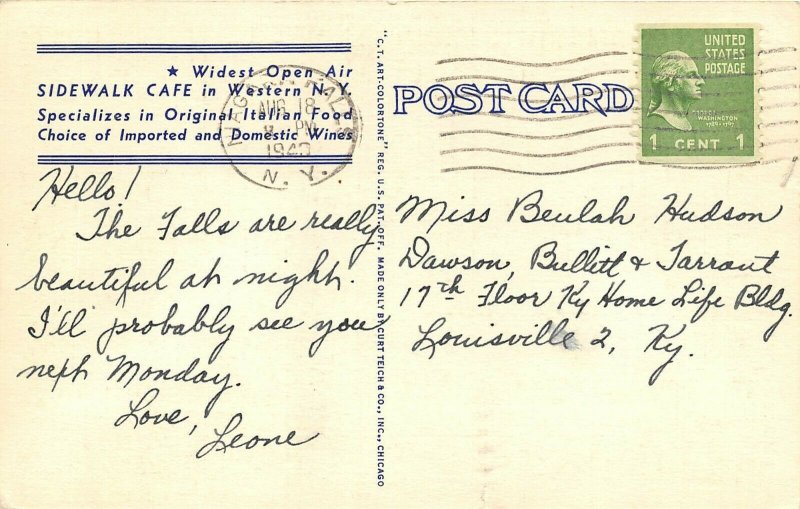 ★ Widest Open Air
SIDEWALK CAFE in Western N. Y.
Specializes in Original Italian Food
Choice of Imported and Domestic Wines
NIAGARA FALLS
AUG 18
PM
N. Y.
Hello!
The Falls are really
beautiful at night.
I'll probably see you
next Monday.
Love,
Leone
"C.T. ART-COLORTONE" REG. U.S. PAT. OFF. MADE ONLY BY CURT TEICH & CO., INC., CHICAGO
POST CARD
UNITED
STATES
POSTAGE
GEORGE
WASHINGTON
1789-1797
1 CENT 1
Miss Beulah Hudson
Dawson, Bullitt & Tarrant
17th Floor Ky Home Life Bldg.
Louisville 2, Ky.